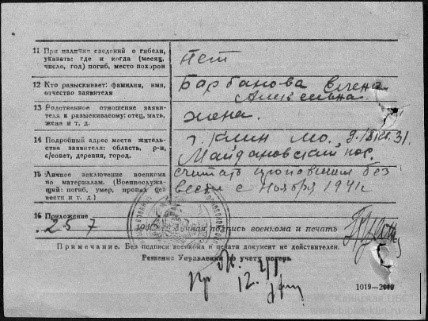 11 При наличии сведений о гибели, указать: где и когда (месяц, число, год) погиб, место похорон
Нет
12 Кто разыскивает: фамилия, имя, отчество заявителя
Барбанова Елена
Алексеевна
13 Родственное отношение заявителя к разыскиваемому; отец, мать, жена и т. д.
жена.
14 Подробный адрес места жительства заявителя: область, р-н, с/совет, деревня, город.
г. Клин МО,
Майдановский пос.
15 Личное заключение военкома по материалам. (Военнослужащий: погиб, умер, пропал без вести и т. д.)
считать пропавшим без
вести с ноября 1941г.
16 Приложение
25 7
Личная подпись военкома и печать
Примечание. Без подписи военкома и печати документ не действителен.
Решение Управления по учету потерь
1019—2000